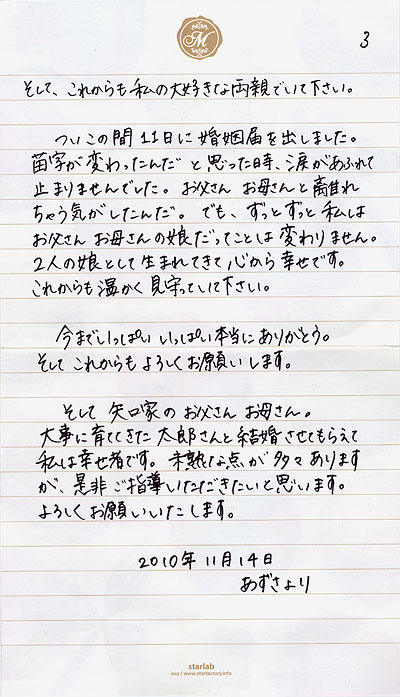 M
3
そして、これからも私の大好きな両親でいて下さい。
ついこの間11日に婚姻届を出しました。
苗字が変わったんだと思った時、涙があふれて
止まりませんでした。お父さん お母さんと離れ
ちゃう気がしたんだ。でも、ずっとずっと私は
お父さん お母さんの娘だってことは変わりません。
2人の娘として生まれてきて心から幸せです。
これからも温かく見守っていて下さい。
今までいっぱい いっぱい本当にありがとう。
そして これからもよろしくお願いします。
そして 矢口家のお父さん お母さん。
大事に育ててきた太郎さんと結婚させてもらえて
私は幸せ者です。未熟な点が多々あります
が、是非ご指導いただきたいと思います。
よろしくお願いいたします。
2010年11月14日
あずさより
starlab
mia / www.starfactory.info